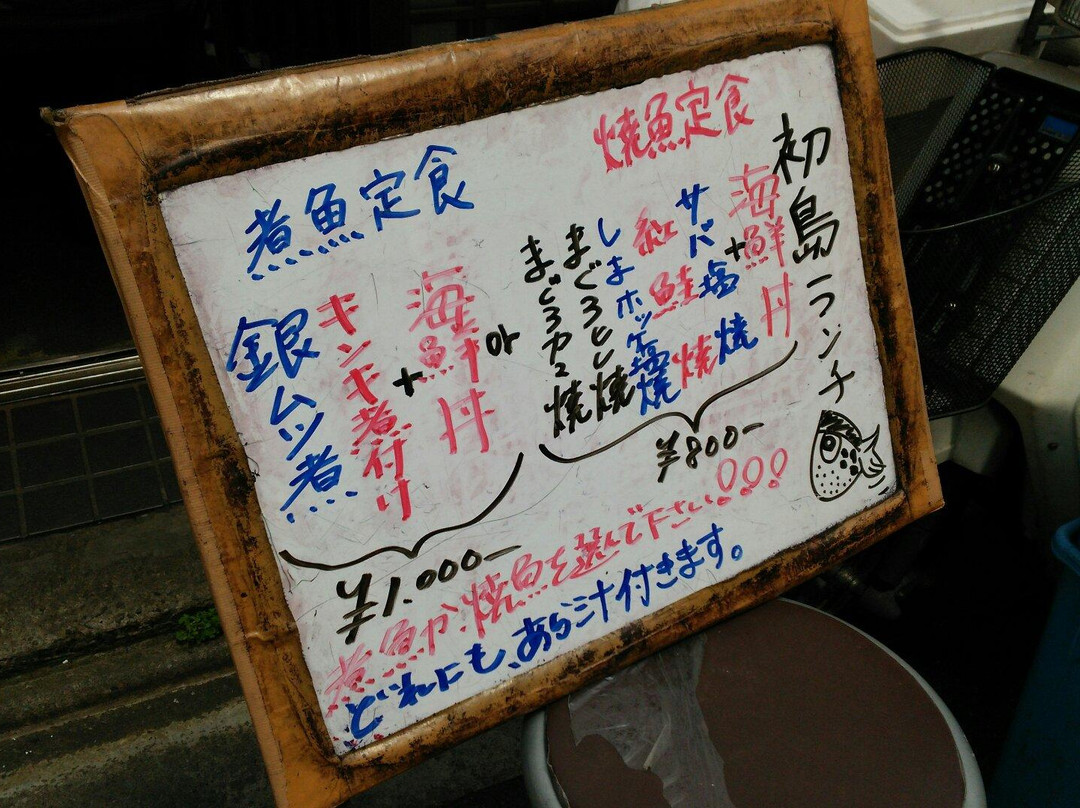 初島ランチ
焼魚定食
海鮮丼
+
サバ塩焼
紅鮭焼
しまホッケ塩焼
まぐろとし焼
まぐろカマ焼
¥800-
煮魚定食
海鮮丼
or
+
キンキ煮付け
銀ムツ煮
¥1.000-
煮魚か焼魚を選んで下さい!!!
どれにも、あら汁付きます。